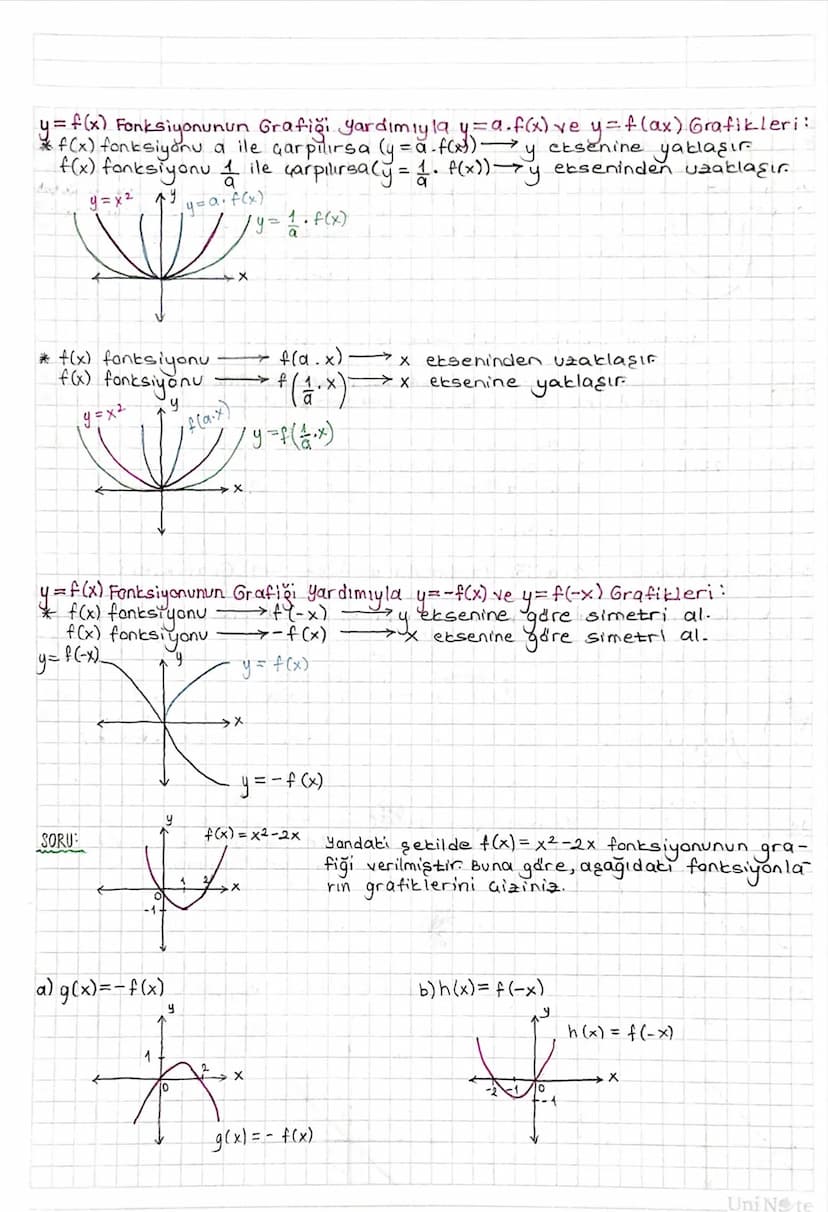 y=f(x) Fonksiyonunun Grafiği Yardımıyla y=a.f(x) ve y=f(ax) Grafikleri:
* f(x) fonksiyonu a ile çarpılırsa (y=a.f(x)) → y eksenine yaklaşır.
f(x) fonksiyonu 1/a ile çarpılırsa (y=1/a.f(x)) → y ekseninden uzaklaşır.
y=x² y y=a.f(x)
y=1/a.f(x)
x
* f(x) fonksiyonu → f(a.x) → x ekseninden uzaklaşır
f(x) fonksiyonu → f(1/a.x) → x eksenine yaklaşır.
y=x² y f(a.x)
y=f(1/a.x)
x
y=f(x) Fonksiyonunun Grafiği Yardımıyla y=-f(x) ve y=f(-x) Grafikleri:
* f(x) fonksiyonu → f(-x) → y eksenine göre simetri al.
f(x) fonksiyonu → -f(x) → x eksenine göre simetri al.
y=f(-x) y y=f(x)
x
y=-f(x)
SORU:
y f(x)=x²-2x
0 1 2 x
-1
Yandaki şekilde f(x)=x²-2x fonksiyonunun gra-
fiği verilmiştir. Buna göre, aşağıdaki fonksiyonla-
rın grafiklerini çiziniz.
a) g(x)=-f(x)
y
1
0 2 x
g(x)=-f(x)
b) h(x)=f(-x)
y
h(x)=f(-x)
-2 -1 0 x
-1
UniNote